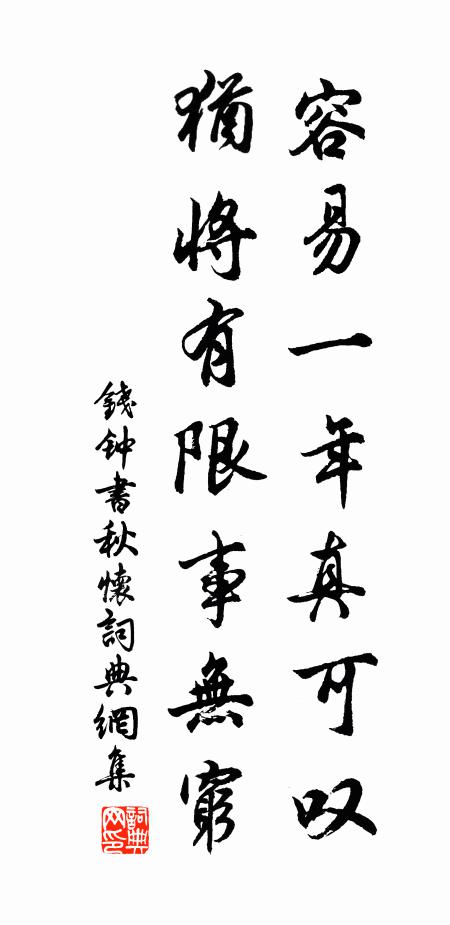 容易一年真可叹
猶將有限事無窮
錢钟書秋懷詞典網集
詞典
网印